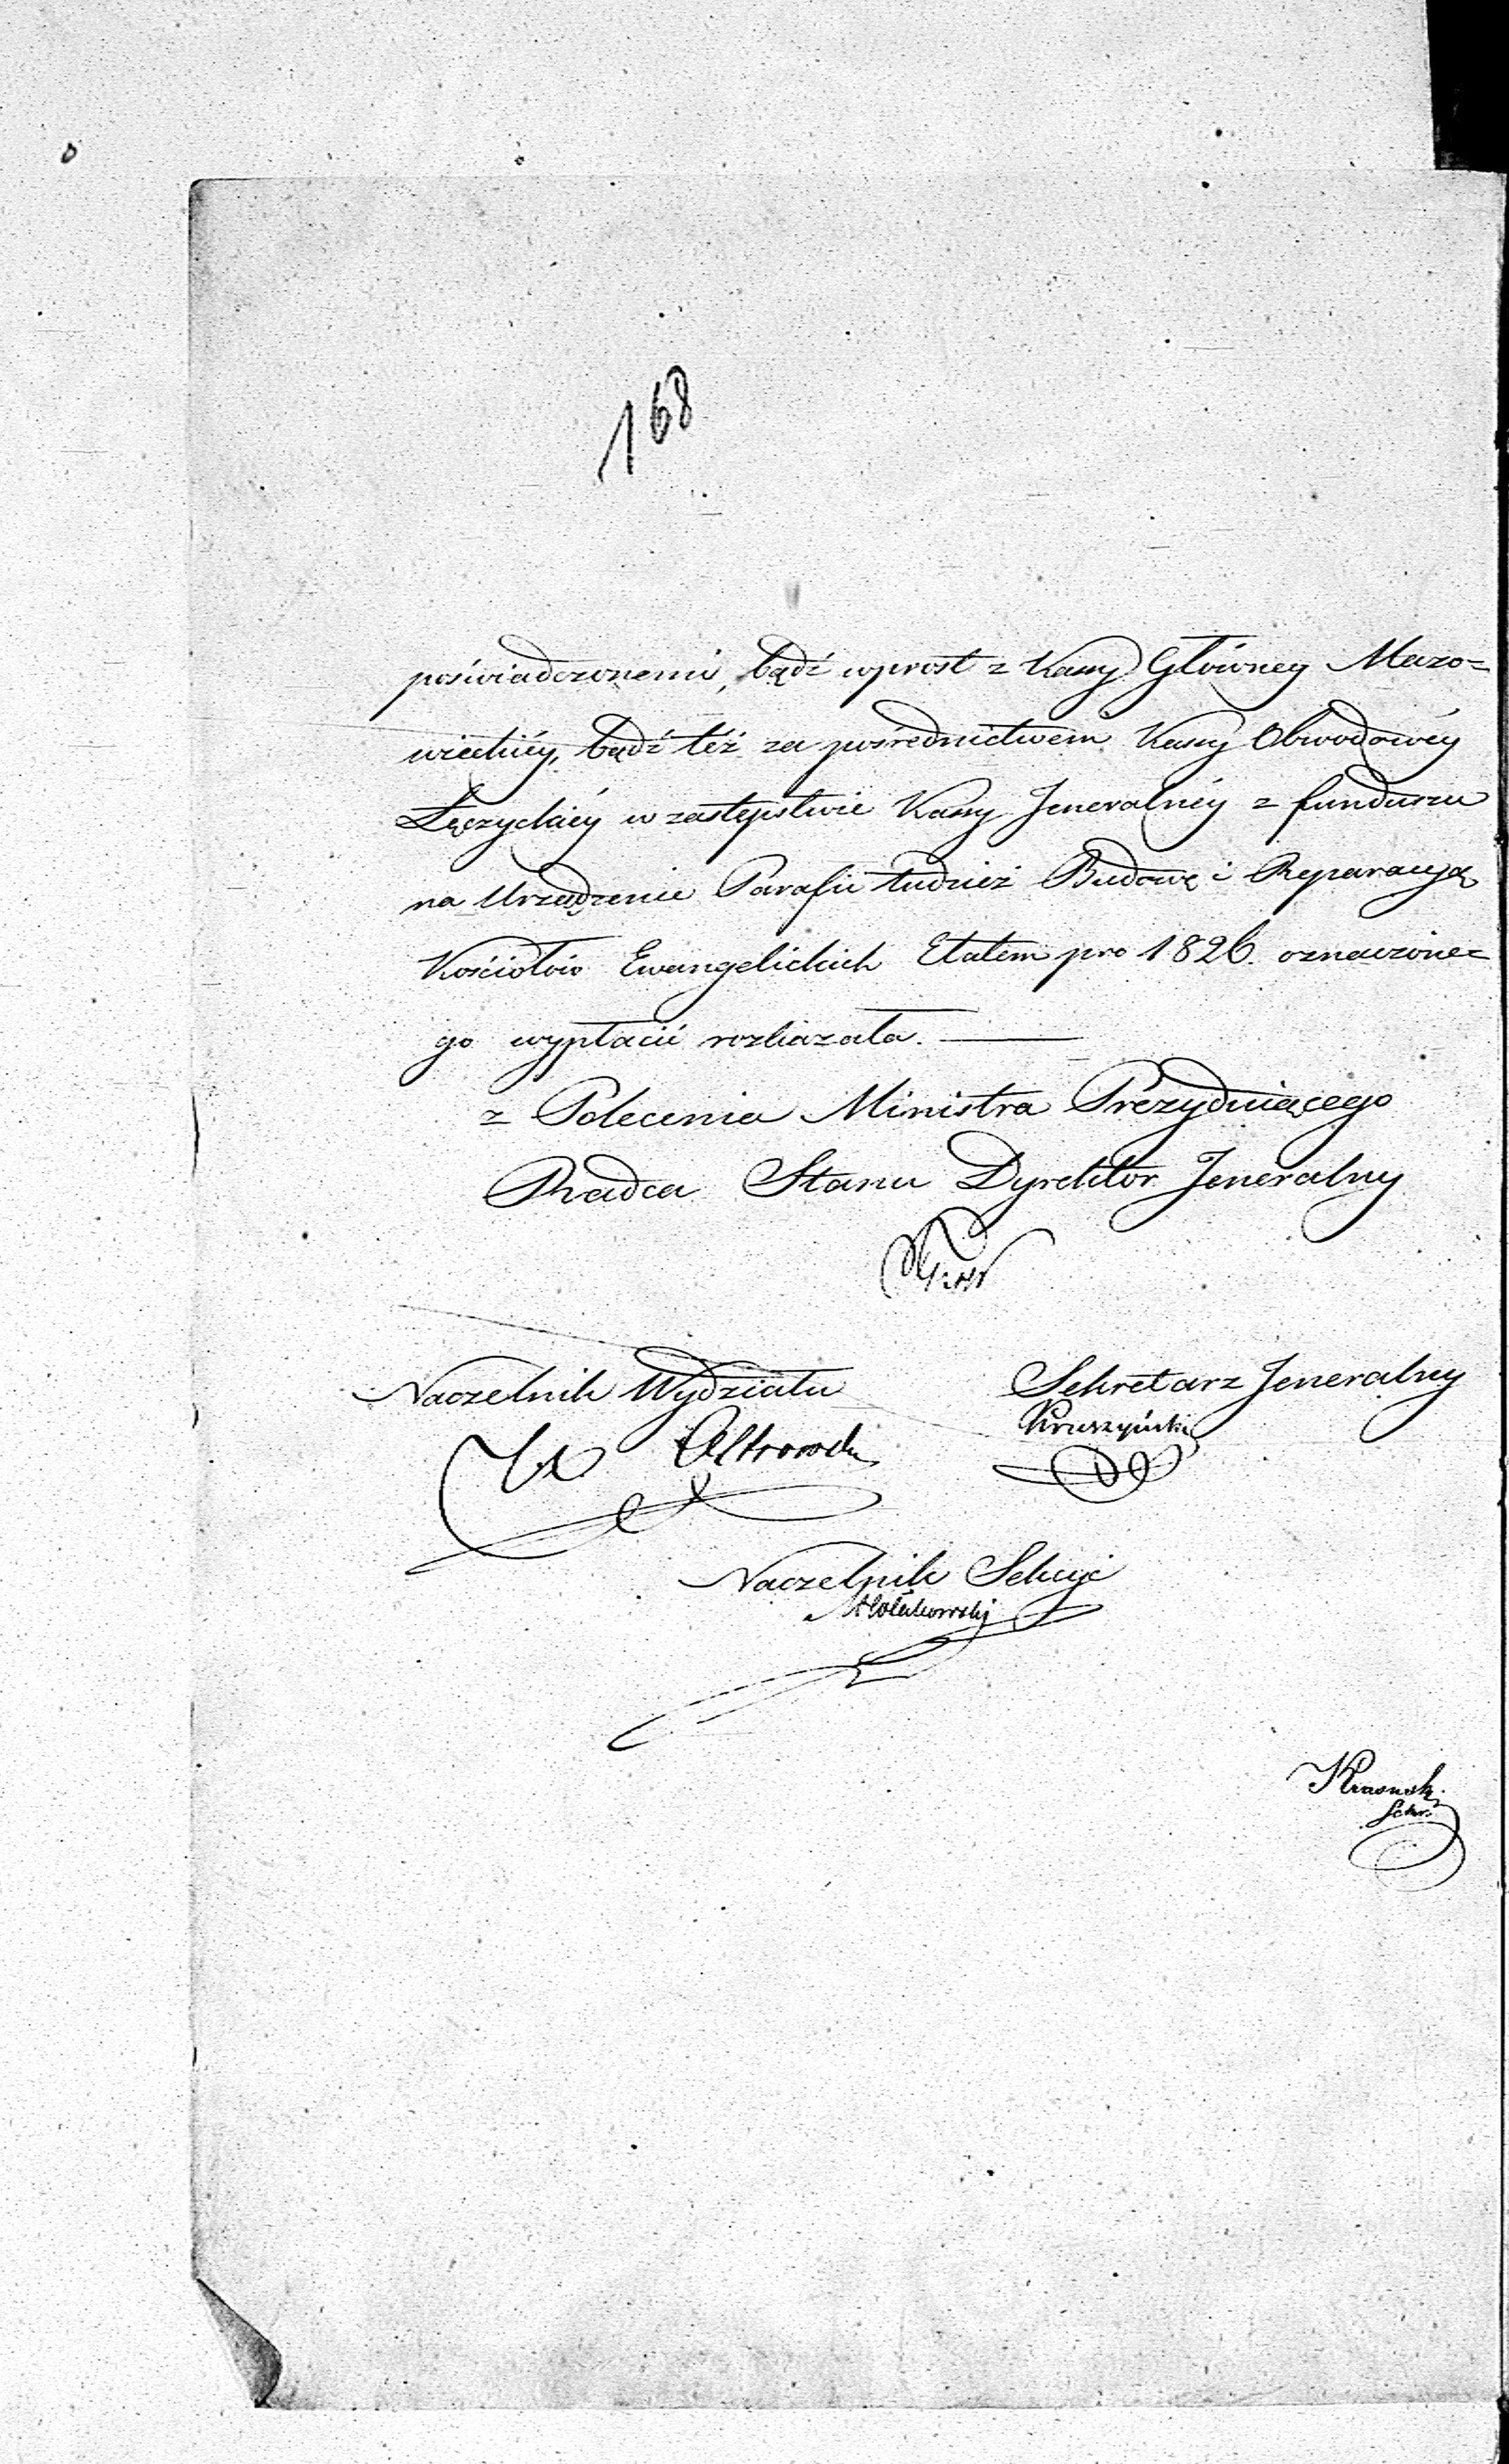 168
poświadczonemi, bądź wprost z Kassy Główney Mazo=
wieckiéy, bądź téż za pośrednictwem Kassy Obwodowéy
Łęczyckiéy w zastępstwie Kassy Jeneralnéy z funduszu
na Urządzenie Parafii tudzież Budowę i Reparacyą
Kościołów Ewangelickich Etatem pro 1826. oznaczone=
go wypłacić rozkazała.
z Polecenia Ministra Prezyduiącego
Radca Stanu Dyrektor Jeneralny
Naczelnik Wydziału
Sekretarz Jeneralny
Kruszyński
Naczelnik Sekcyi